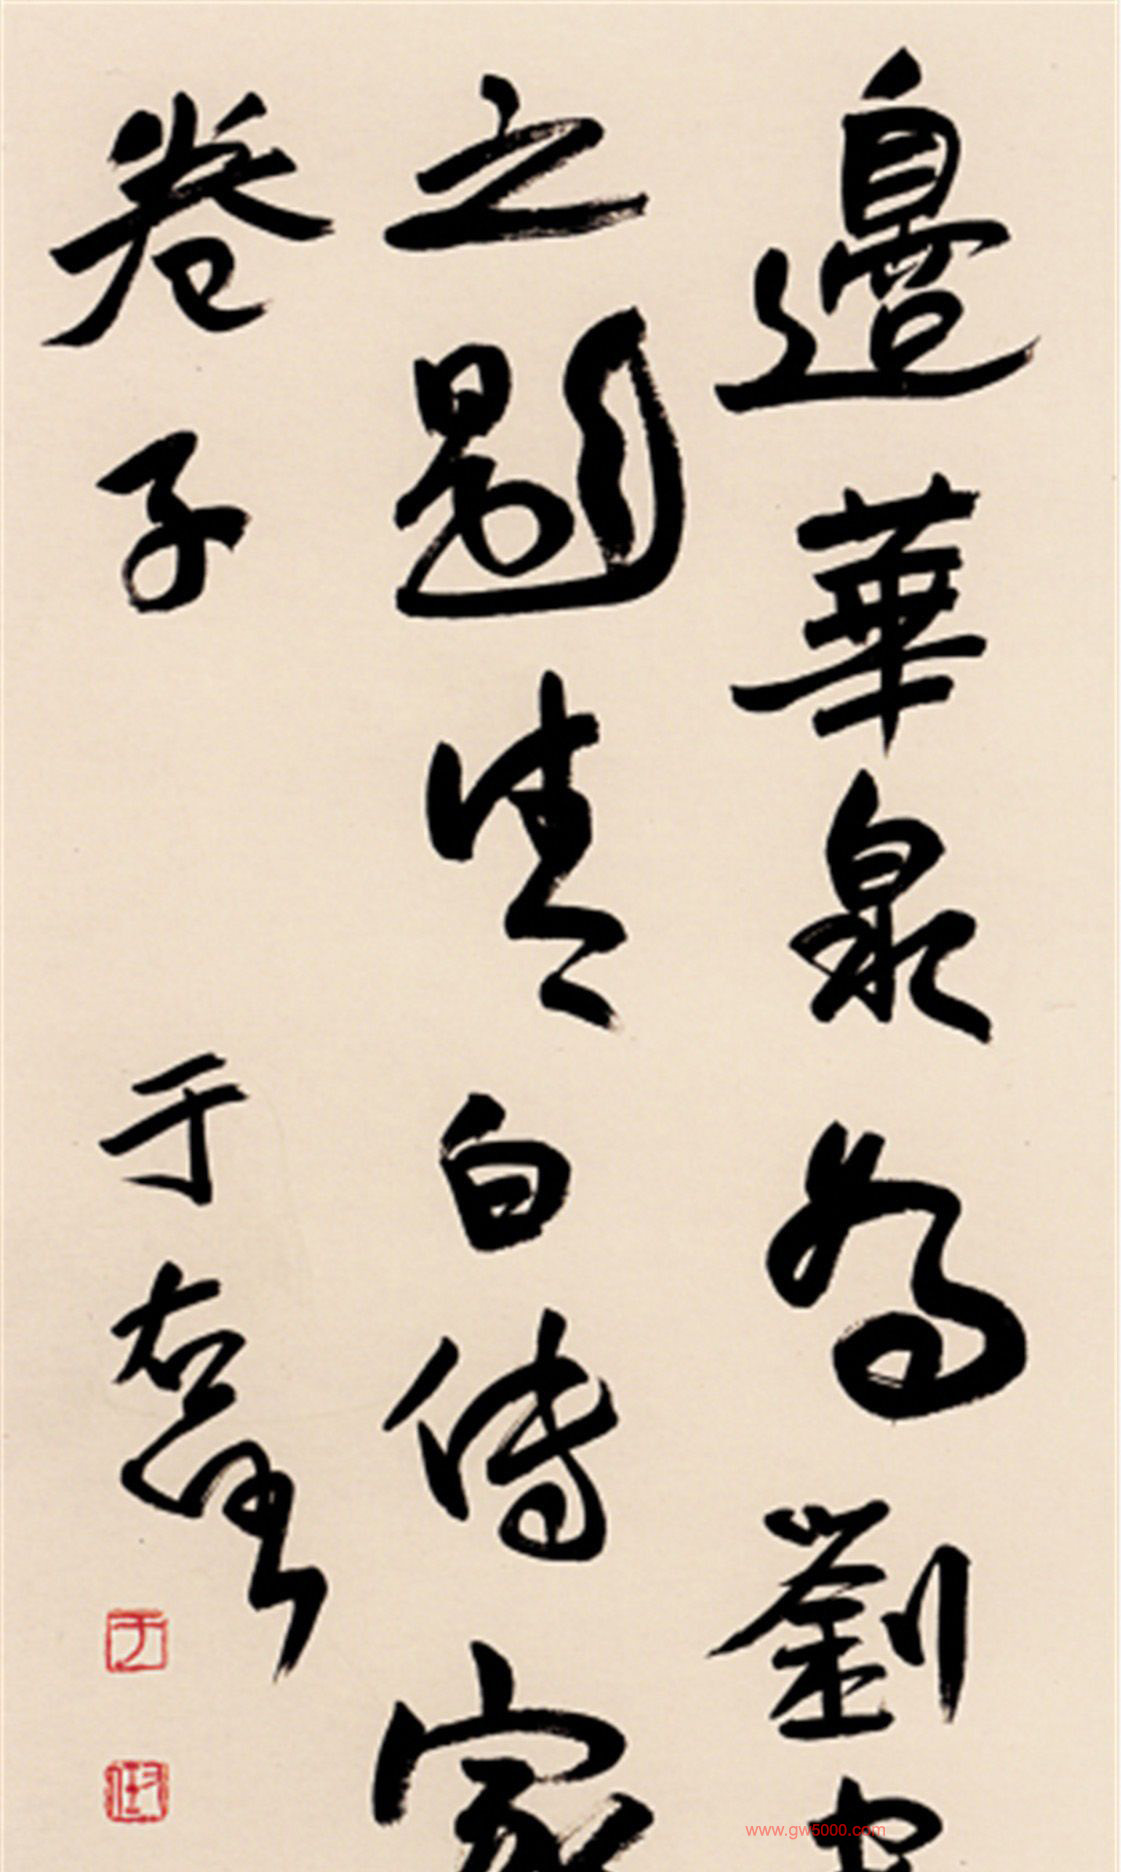 邊華泉為劉
之題
白傳家
卷子
于右
于
www.gw5000.com